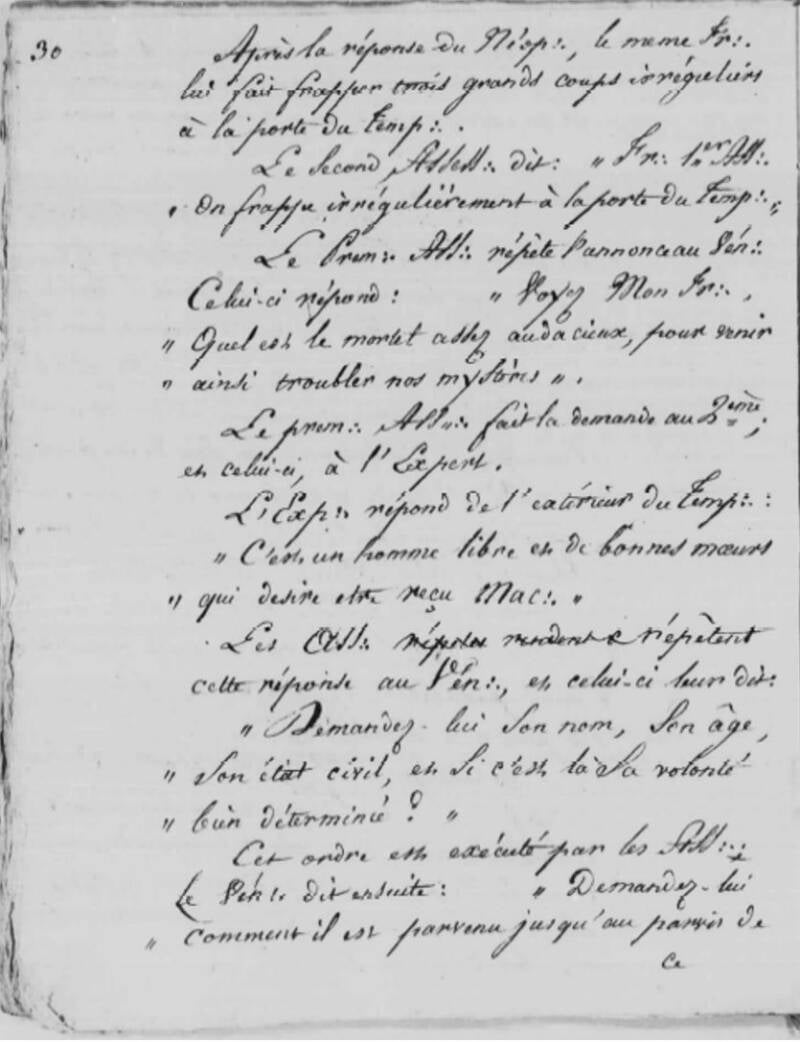 30
Après la réponse du Néop:., le meme Fr:.
lui fait frapper trois grands coups irréguliérs
à la porte du Temp:. .
Le Second, Assess:. dit: " Fr:. 1.er Ass:.
" On frappe irréguliérement à la porte du Temp:. ,,
Le Prem:. Ass:. répète l'annonce au Vén:.
Celui-ci répond : " Voyez Mon Fr:. ,
" Quel est le mortel assez audacieux, pour venir
" ainsi troubler nos mystères ".
Le prem:. Ass:. fait la demande au 2.ème ;
et celui-ci, à l'Expert.
L'Exp:. répond de l'extérieur du Temp:. :
" C'est un homme libre et de bonnes mœurs
" qui desire etre reçu Mac:. "
Les Ass:. rendent & répètent
cette réponse au Vén:., et celui-ci leur dit:
" Demandez-lui son nom, Son âge,
" Son état civil, et Si c'est là Sa volonté
" bien déterminé ? "
Cet ordre est exécuté par les Ass:. .
Le Vén:. dit ensuite : " Demandez-lui
" Comment il est parvenu jusqu'au parvis de
ce